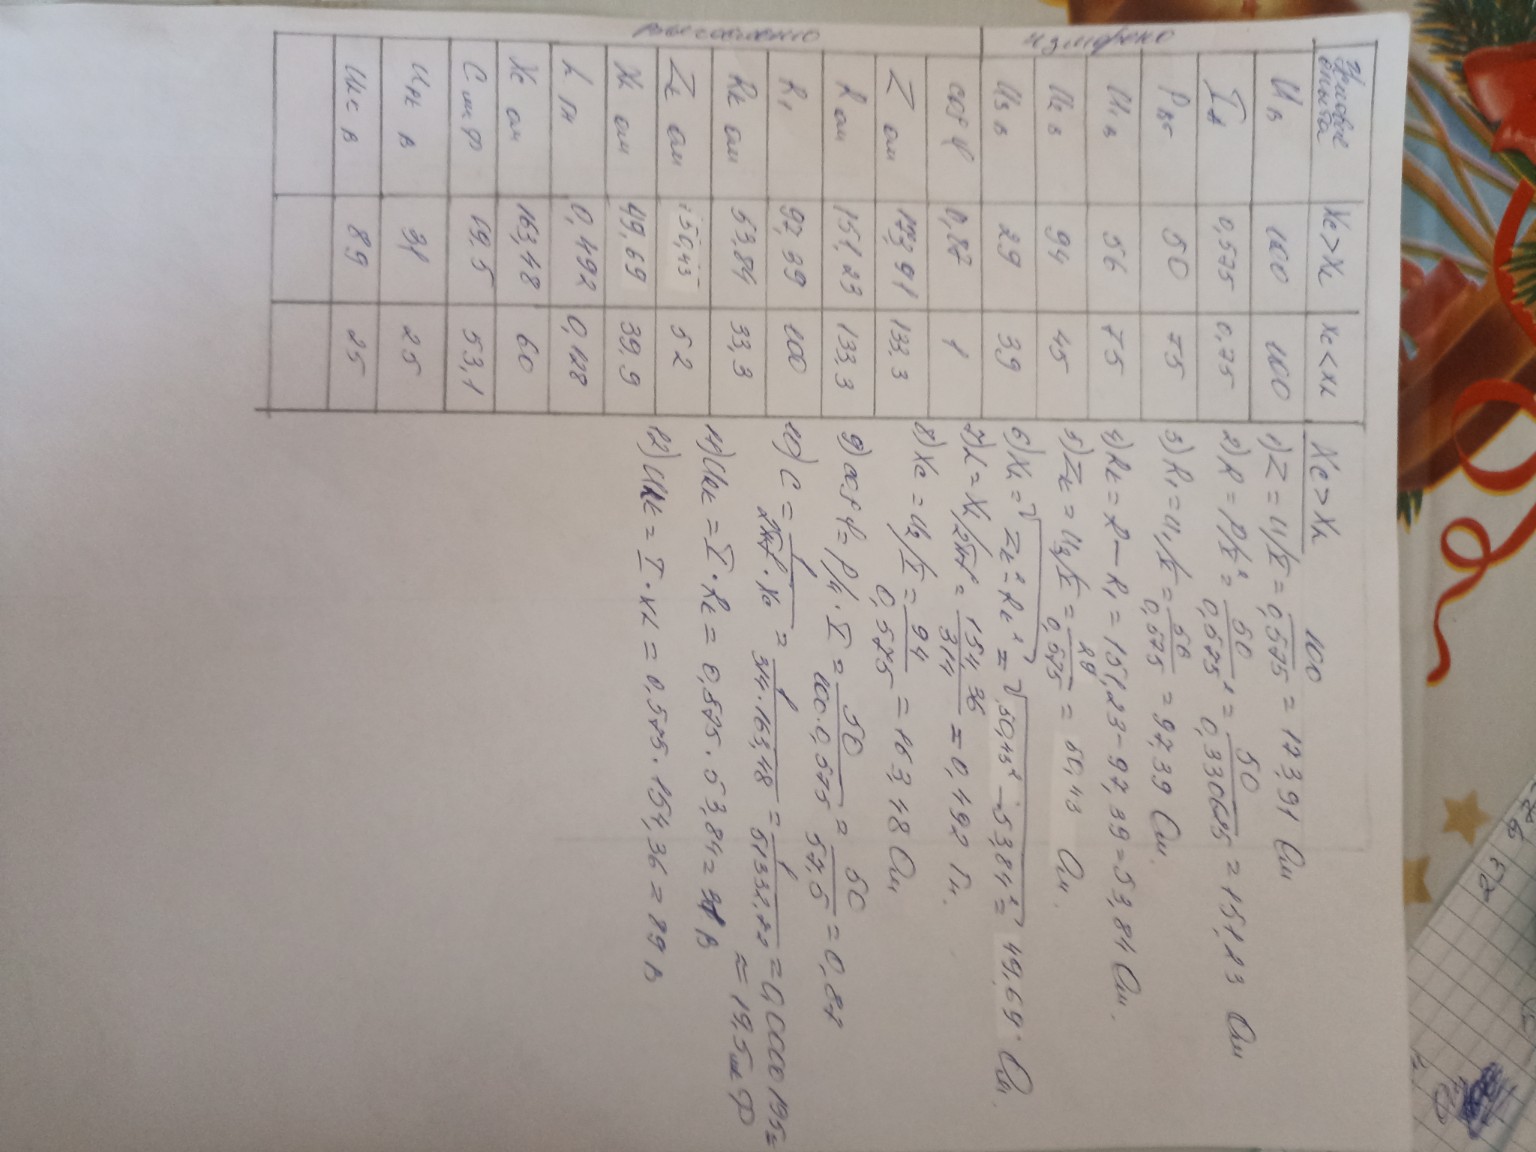 измерено
Условие опыта Xc>XL Xc<XL
U в 100 100
I а 0,575 0,75
P вт 50 75
U₁ в 56 75
U₂ в 94 45
U₃ в 29 39
cos φ 0,87 1
Z ом 173,91 133,3
R ом 151,23 133,3
R₁ 97,39 100
Rк ом 53,84 33,3
Zк ом 50,43 52
XL ом 49,69 39,9
L гн 0,492 0,128
Xc ом 163,48 60
C мкф 19,5 53,1
Uак в 31 25
ULк в 89 25
Xc > XL
1) Z = U/I = 100/0,575 = 173,91 Ом
2) R = P/I² = 50/0,575² = 50/0,330625 = 151,23 Ом
3) R₁ = U₁/I = 56/0,575 = 97,39 Ом.
4) Rк = R − R₁ = 151,23 − 97,39 = 53,84 Ом.
5) Zк = U₃/I = 29/0,575 = 50,43 Ом.
6) XL = √Zк² − Rк² = √50,43² − 53,84² = 49,69 Ом.
7) L = XL/2πf = 154,36/314 = 0,492 Гн.
8) Xc = U₂/I = 94/0,575 = 163,48 Ом
9) cos φ = P/U·I = 50/100·0,575 = 50/57,5 = 0,87
10) C = 1/2πf·Xc = 1/314·163,48 = 1/51332,72 = 0,0000195 =
≈ 19,5 мкФ
11) Uак = I·Rк = 0,575·53,84 = 31 В
12) ULк = I·XL = 0,575·154,36 = 89 В
23